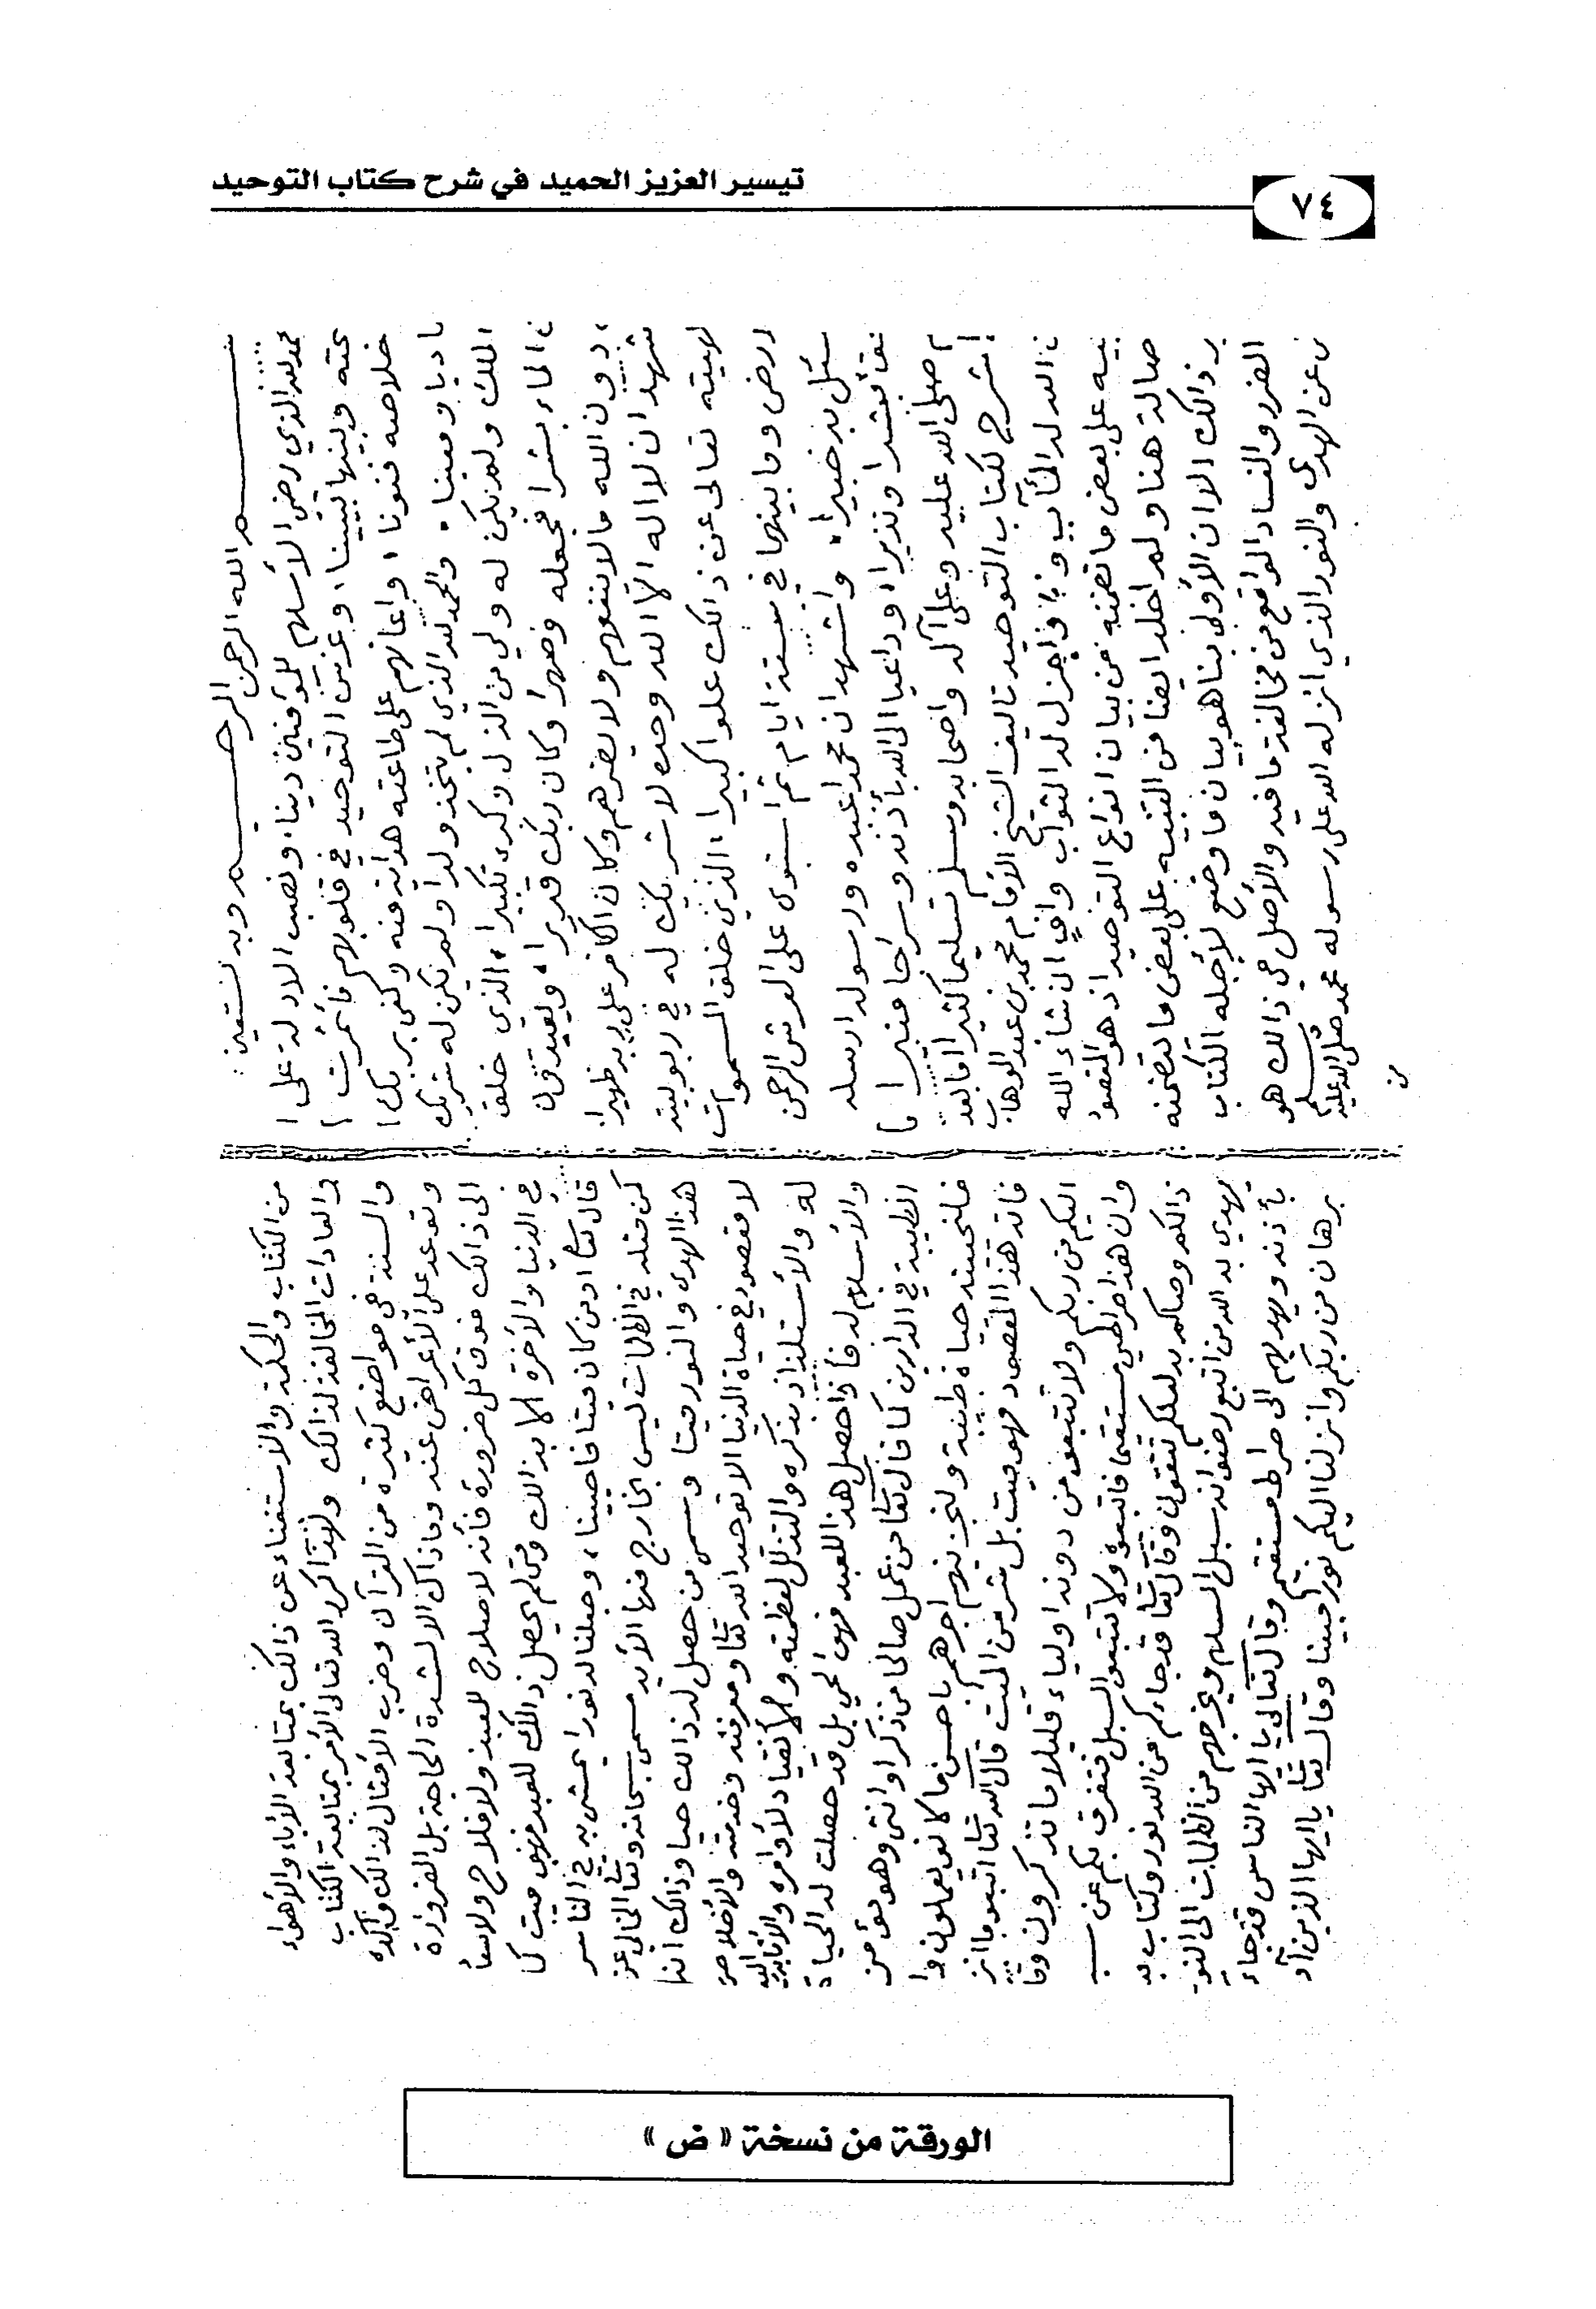 تيسير العزيز الحميد في شرح كتاب التوحيد
٧٤
الله الرحمن الرحيم وبه نستعين
الذي رضي الأسلام للمؤمنين دينا، ونصب الادلة على
وبينها تبيينا، وغرس التوحيد في قلوبهم فأثمرت
خلاصه فنونا، واعانهم على طاعته هداية منه وكفى بربك
ديا ومعينا، والحمد لله الذي لم يتخذ ولدا ولم يكن له شريك
الملك ولم يكن له ولي من الذل وكبره تكبيرا، الذي خلق
الماء بشرا فجعله وصهرا وكان ربك قديرا، ويعبدون
دون الله ما لا ينفعهم ولا يضرهم وكان الكافر على ربه ظهيرا
شهد ان لا اله الا الله وحده لا شريك له في ربوبيته
تعالى عن ذالك علوا كبيرا، الذي خلق السموات
رض وما بينهما في ستة ايام ثم استوى على العرش الرحمن
سئل به خبيرا، واشهد ان محمدا عبده ورسوله ارسله
بشيرا ونذيرا، وداعيا الى الله بأذنه وسراجا منيرا
صلى الله عليه وعلى آله واصحابه وسلم تسليما كثيرا اما بعد
شرح لكتاب التوحيد تاليف الشيخ الأمام محمد بن عبد الوهاب
الله له المآب و اجزل له الثواب واف ان شاء الله
بيه على بعض ما تضمنه من بيان انواع التوحيد اذ هو المقصود
صالة هنا ولم اخله ايضا من التنبيه على بعض ما تضمنه
ذالك الا ان الأولى بنا هو بيان ما وضع لأجله الكتاب
الضرر والفساد الواقع من مخالفة ما فيه والأصل في ذالك هو
عن الهدى والنور الذي انزله الله على رسوله محمد صلى الله عليه وسلم
من
من الكتاب والحكمة والاستغناء عن ذالك بمتابعة الأباء والأهواء
والعادات المخالفة لذالك ولهذا كرر الله تعالى الأمر بمتابعة الكتاب
والسنة في مواضع كثيرة من القرآن وضرب الأمثال لذالك وأكده
وتوعد على الأعراض عنه وما ذاك الا لشدة الحاجة بل الضرورة
الى ذالك فوق كل ضرورة فأنه لا صلاح للعبد ولا فلاح ولا سعا
في الدنيا والأخرة الا بذالك ومتى لم يحصل ذالك للعبد فهو ميت كما
قال تعا اومن كان ميتا فاحييناه وجعلنا له نورا يمشي به في الناس
كمن مثله في الظلمات ليس بخارج منها الأية سمى سبحانه وتعا الخالي عن
هذا الهدى والنور ميتا وسمى من حصل له ذالك حيا وذالك انه
لا مقصود في حياة الدنيا الا توحيد الله تعا ومعرفته وخدمته والأخلاص
له والأستلذاذ بذكره والتذلل لعظمته والأنقياد لأوامره والأنابة اليه
والأسلام له فأذا حصل هذا للعبد فهو الحي بل قد حصلت له الحياة
الطيبة في الدارين كما قال تعا من عمل صالحا من ذكر او انثى وهو مؤمن
فلنحيينه حياة طيبة ولنجزينهم اجرهم باحسن ما كانو يعملون وا
فاته هذا المقصود فهو ميت بل شر من الميت قال الله تعا اتبعو ما انز
اليكم من ربكم ولا تتبعو من دونه اولياء قليلا ما تذكرون وقا
وان هذا صراطي مستقيما فاتبعوه ولا تتبعو السبل فتفرق بكم عن سب
ذالكم وصاكم به لعلكم تتقون وقال تعا قد جاءكم من الله نور وكتاب
يهدي به الله من اتبع رضوانه سبل السلام ويخرجهم من الظلمات الى النور
بأذنه ويهديهم الى صراط مستقيم وقال تعالى يا ايها الناس قد جاء
برهان من ربكم وانزلنا اليكم نورا مبينا وقال تعا يا ايها الذين آ
الورقة من نسخة « ض »